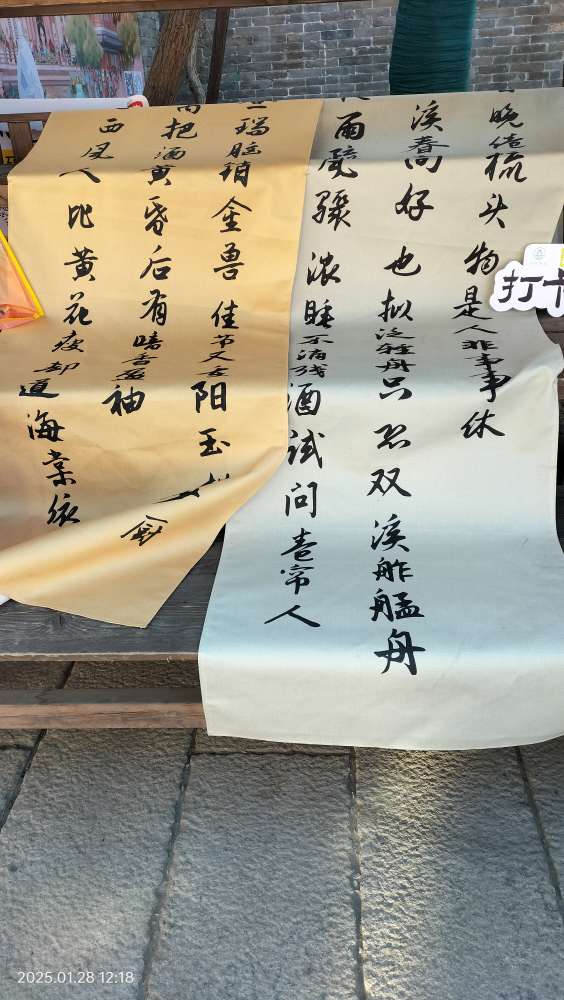 晚倦梳头物是人非事事休
溪春尚好也拟泛轻舟只恐双溪舴艋舟
雨疏骤浓睡不消残酒试问卷帘人
瑞脑销金兽佳节又重阳玉
把酒黄昏后有暗香盈袖
西风人比黄花瘦却道海棠依
打卡
2025.01.28 12:18